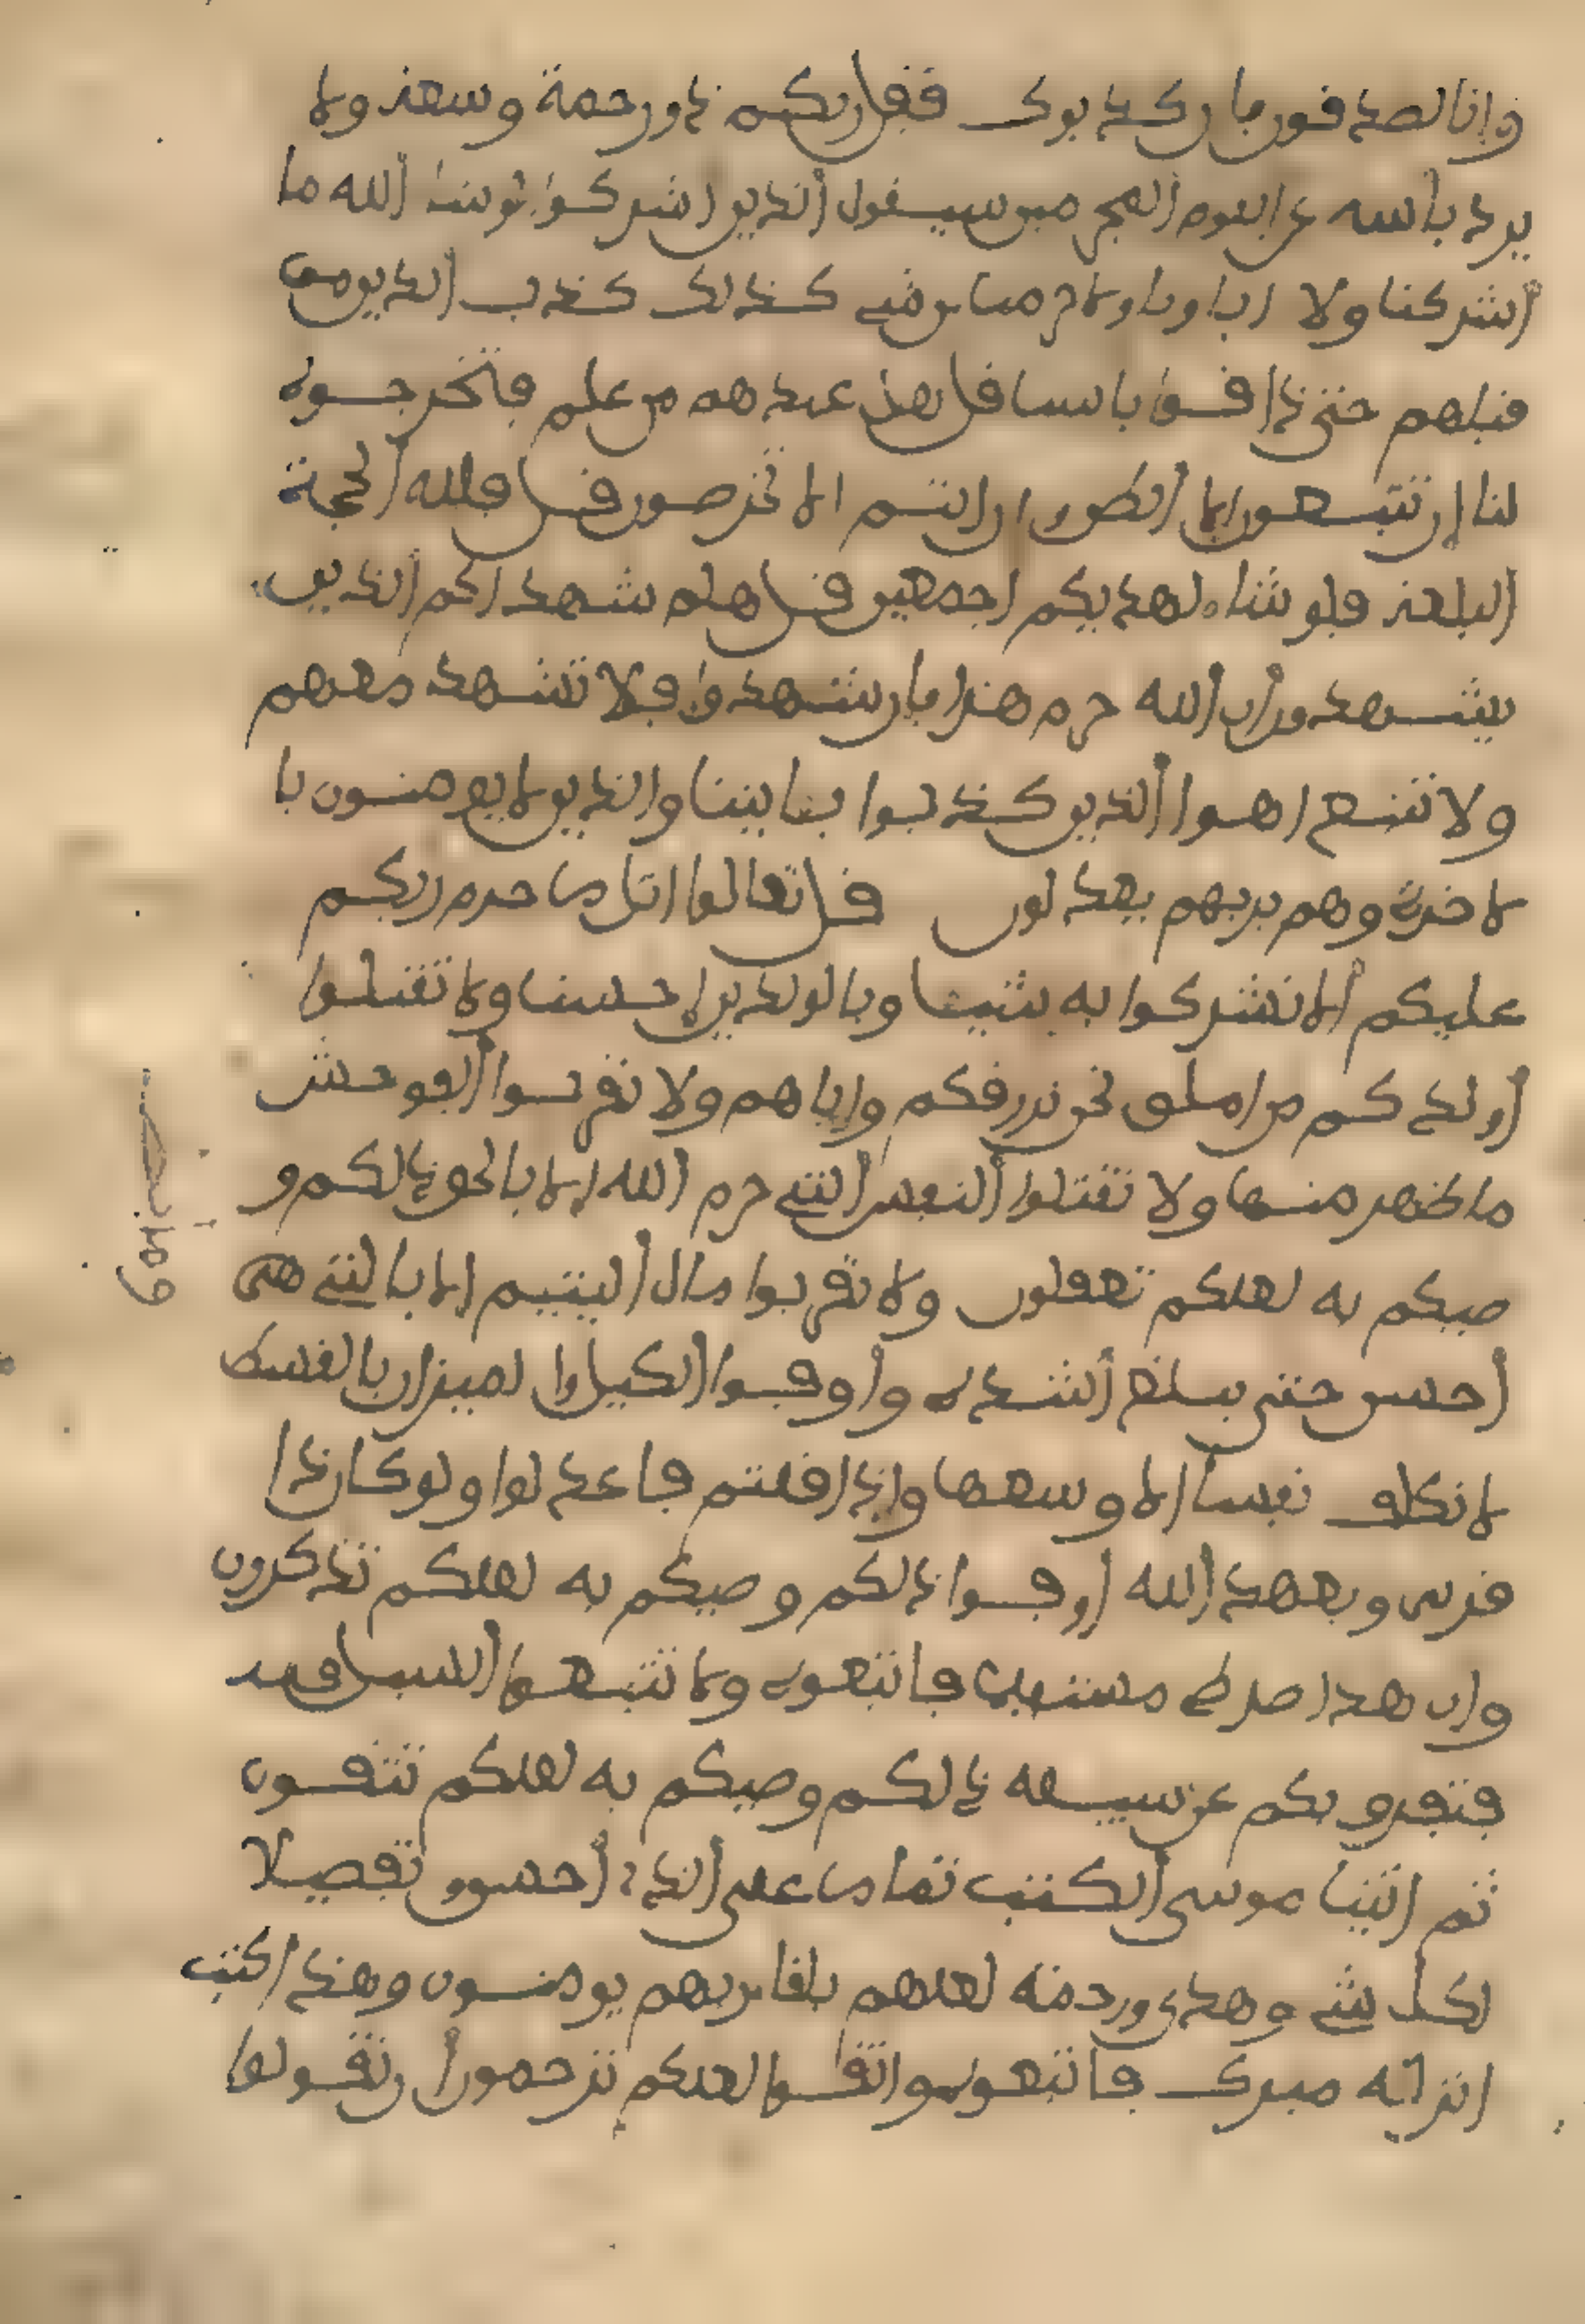 وانا لصدفون فان كذبوك فقل ربكم ذو رحمة وسعة ولا
يرد باسه عن القوم المجرمين سيقول الذين اشركوا لو شا الله ما
أشركنا ولا اباونا ولا حرمنا من شي كذلك كذب الذين من
قبلهم حتى ذاقوا باسنا قل هل عندهم من علم فتخرجوه
لنا إن تتبعون إلا الظن وإن انتم الا تخرصون قل فلله الحجة
البلغة فلو شاء لهديكم اجمعين قل هلم شهداكم الذين
يشهدون أن الله حرم هذا فإن شهدوا فلا تشهد معهم
ولا تتبع اهوا الذين كذبوا بئايتنا والذين لا يومنون با
لاخرة وهم بربهم يعدلون قل تعالوا اتل ما حرم ربكم
عليكم ألا تشركوا به شيئا وبالولدين إحسنا ولا تقتلوا
أولدكم من املق نحن نرزقكم وإياهم ولا تقربوا الفوحش
ما ظهر منها ولا تقتلوا النفس التي حرم الله إلا بالحق ذالكم و
صيكم به لعلكم تعقلون ولا تقربوا مال اليتيم إلا بالتي هى
أحسن حتى يبلغ أشده وأوفوا الكيل وا لميزان بالقسط
لا نكلف نفسا الا وسعها وإذا قلتم فاعدلوا ولو كان ذا
قربى وبعهد الله أوفوا ذالكم وصيكم به لعلكم تذكرون
وان هذا صرطي مستقيما فاتبعوه ولا تتبعوا السبل
فتفرق بكم عن سبيله ذالكم وصيكم به لعلكم تتقون
ثم اتينا موسى الكتب تماما على الذي أحسن وتفصيلا
لكل شي وهدى ورحمة لعلهم بلقا ربهم يومنون وهذا كتب
انزلنه مبرك فاتبعوه واتقوا لعلكم ترحمون أن تقولوا